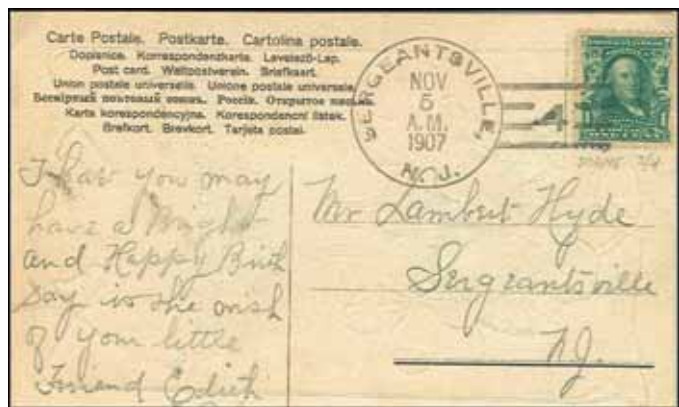 Carte Postale. Postkarte. Cartolina postale.
Dopisnice. Korrespondenzkarte. Levelező-Lap.
Post card. Weltpostverein. Briefkaart.
Union postale universelle. Unione postale universale.
Всемірный почтовый союзъ. Россія. Открытое
Karta korespondencyjna. Korespondencni listek.
Brefkort. Brevkort. Tarjeta postal.
SERGEANTSVILLE,
NOV
5
A.M.
1907
N.J.
4
1
That you may
have a Bright
and Happy Birth
Day is the wish
of your little
Friend Edith
Mr Lambert Hyde
Sergeantsville
N.J.